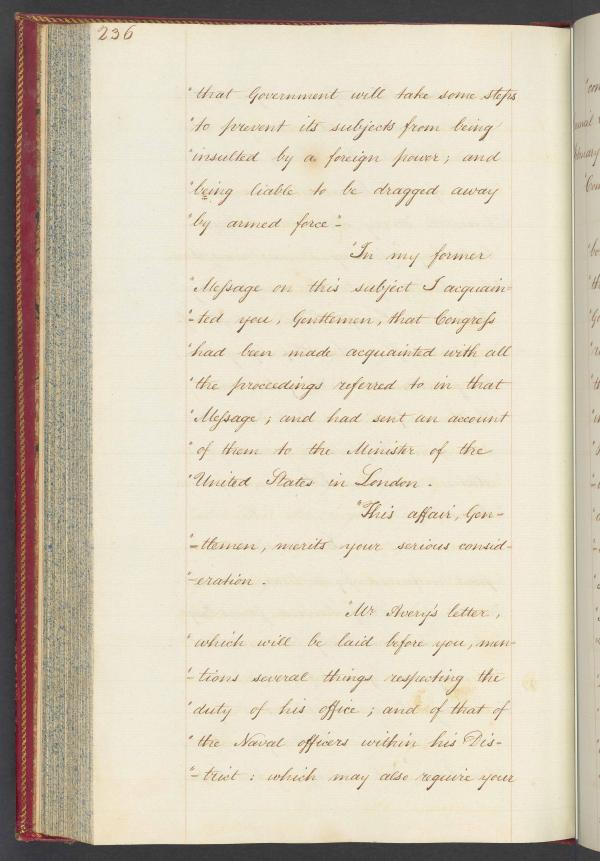 236
"that Government will take some steps
"to prevent its subjects from being
"insulted by a foreign power; and
"being liable to be dragged away
"by armed force"-
"In my former
"Meſsage on this subject I acquain=
"-ted you, Genttemen, that Congreſs
"had been made acquainted with all
"the proceedings referred to in that
"Meſsage; and had sent an account
"of them to the Minister of the
"United States in London.
"This affair, Gen-
"-tlemen, merits your serious consid-
"-eration.
"Mr Avery's letter,
"which will be laid before you, men-
"-tions several things respecting the
"duty of his office; and of that of
"the Naval officers within his Dis-
"-trict: which may also require your